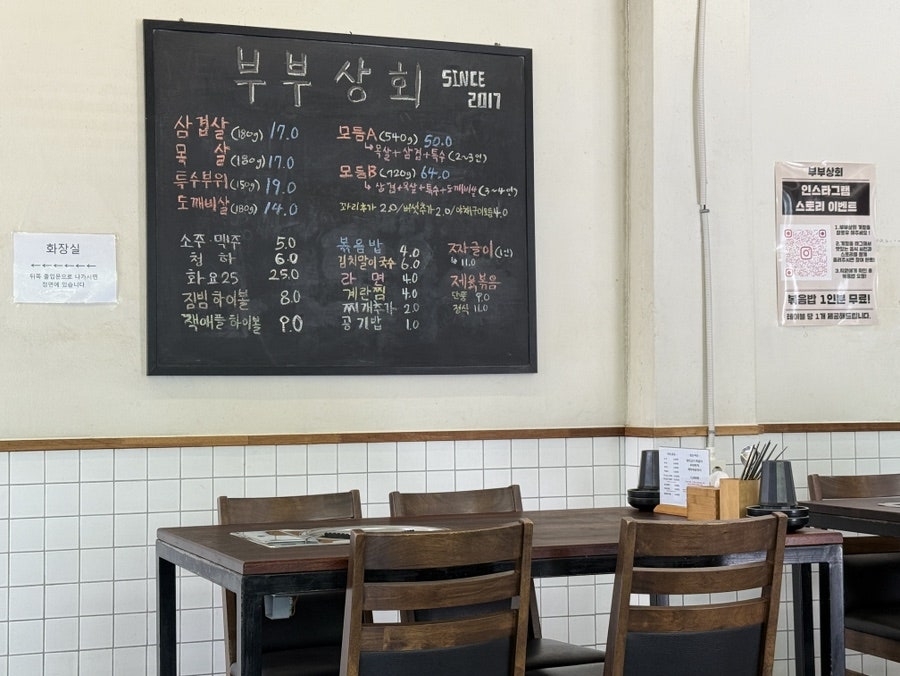 부부상회 SINCE 2017
삼겹살 (180g) 17.0
목살 (180g) 17.0
특수부위 (150g) 19.0
도깨비살 (180g) 14.0
모듬A (540g) 50.0
↳목살+삼겹+특수 (2~3인)
모듬B (720g) 64.0
↳삼겹+목살+특수+도깨비살 (3~4인)
꽈리추가 2.0/버섯추가 2.0/야채구이모듬 4.0
소주·맥주 5.0
천하 6.0
화요25 25.0
짐빔하이볼 8.0
잭애플하이볼 9.0
볶음밥 4.0
김치말이국수 6.0
라면 4.0
계란찜 4.0
찌개추가 2.0
공기밥 1.0
짜글이(1인)
↳ 11.0
제육볶음
단품 9.0
정식 11.0
화장실
←←←←←←
뒤쪽 출입문으로 나가시면
정면에 있습니다.
부부상회
인스타그램
스토리 이벤트
볶음밥 1인분 무료!
테이블 당 1개 제공해드립니다.